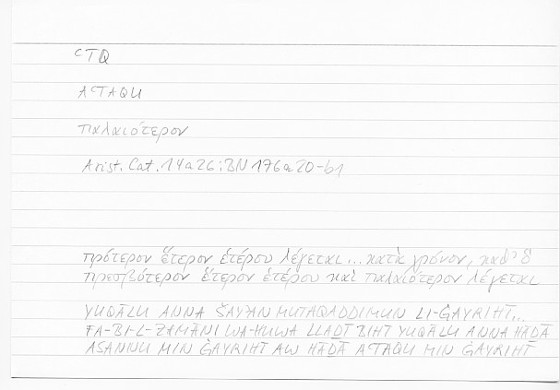 ᶜTQ
AᶜTAQU
παλαιότερον
Arist. Cat. 14a26; BN 176a20-b1
πρότερον ἕτερον ἑτέρου λέγεται... κατὰ χρόνον, καθ' ὃ
πρεσβύτερον ἕτερον ἑτέρου καὶ παλαιότερον λέγεται
YUQĀLU ANNA ŠAYʾAN MUTAQADDIMUN LI-ĠAYRIHĪ...
FA-BI-L-ZAMĀNI WA-HUWA LLAḎĪ BIHĪ YUQĀLU ANNA HĀḎĀ
ASANNU MIN ĠAYRIHĪ AW HĀḎĀ AᶜTAQU MIN ĠAYRIHĪ